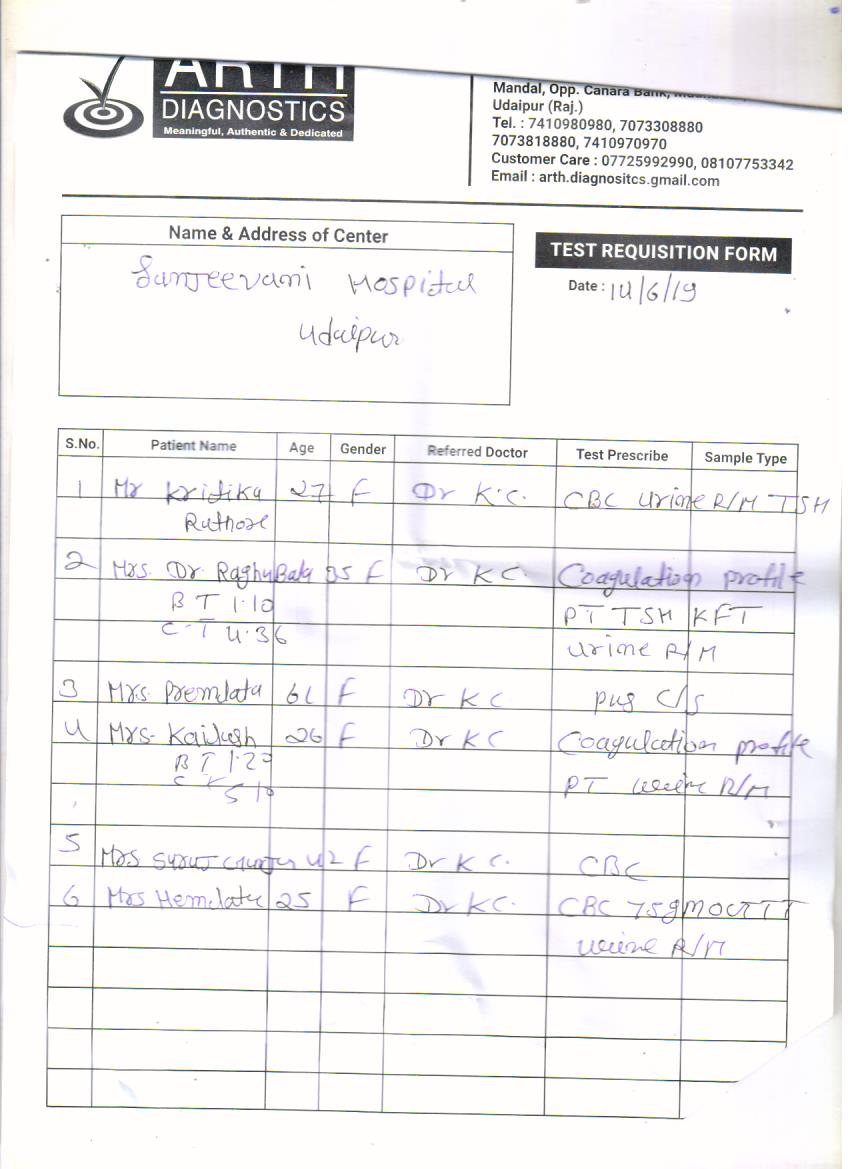 ARTH
DIAGNOSTICS
Meaningful, Authentic & Dedicated
Mandal, Opp. Canara Bank,
Udaipur (Raj.)
Tel. : 7410980980, 7073308880
7073818880, 7410970970
Customer Care : 07725992990, 08107753342
Email : arth.diagnositcs.gmail.com
Name & Address of Center
Sanjeevani Hospital
Udaipur
TEST REQUISITION FORM
Date : 14/6/19
S.No. Patient Name Age Gender Referred Doctor Test Prescribe Sample Type
1 Mr Kritika 27 F Dr K.C. CBC Urine R/M TSH
Rathore
2 Mrs. Dr. Raghu Bala 35 F Dr K C. Coagulation profile
B T 1.10 PT TSH KFT
C-T 4.36 Urine R/M
3 Mrs. Premlata 61 F Dr K C pus C/S
4 Mrs. Kailash 26 F Dr K C Coagulation profile
B T 1.20 PT urine R/M
5 10
5 Mrs 42 F Dr K C. CBC
6 Mrs Hemlata 25 F Dr K C. CBC 75gm
urine R/M